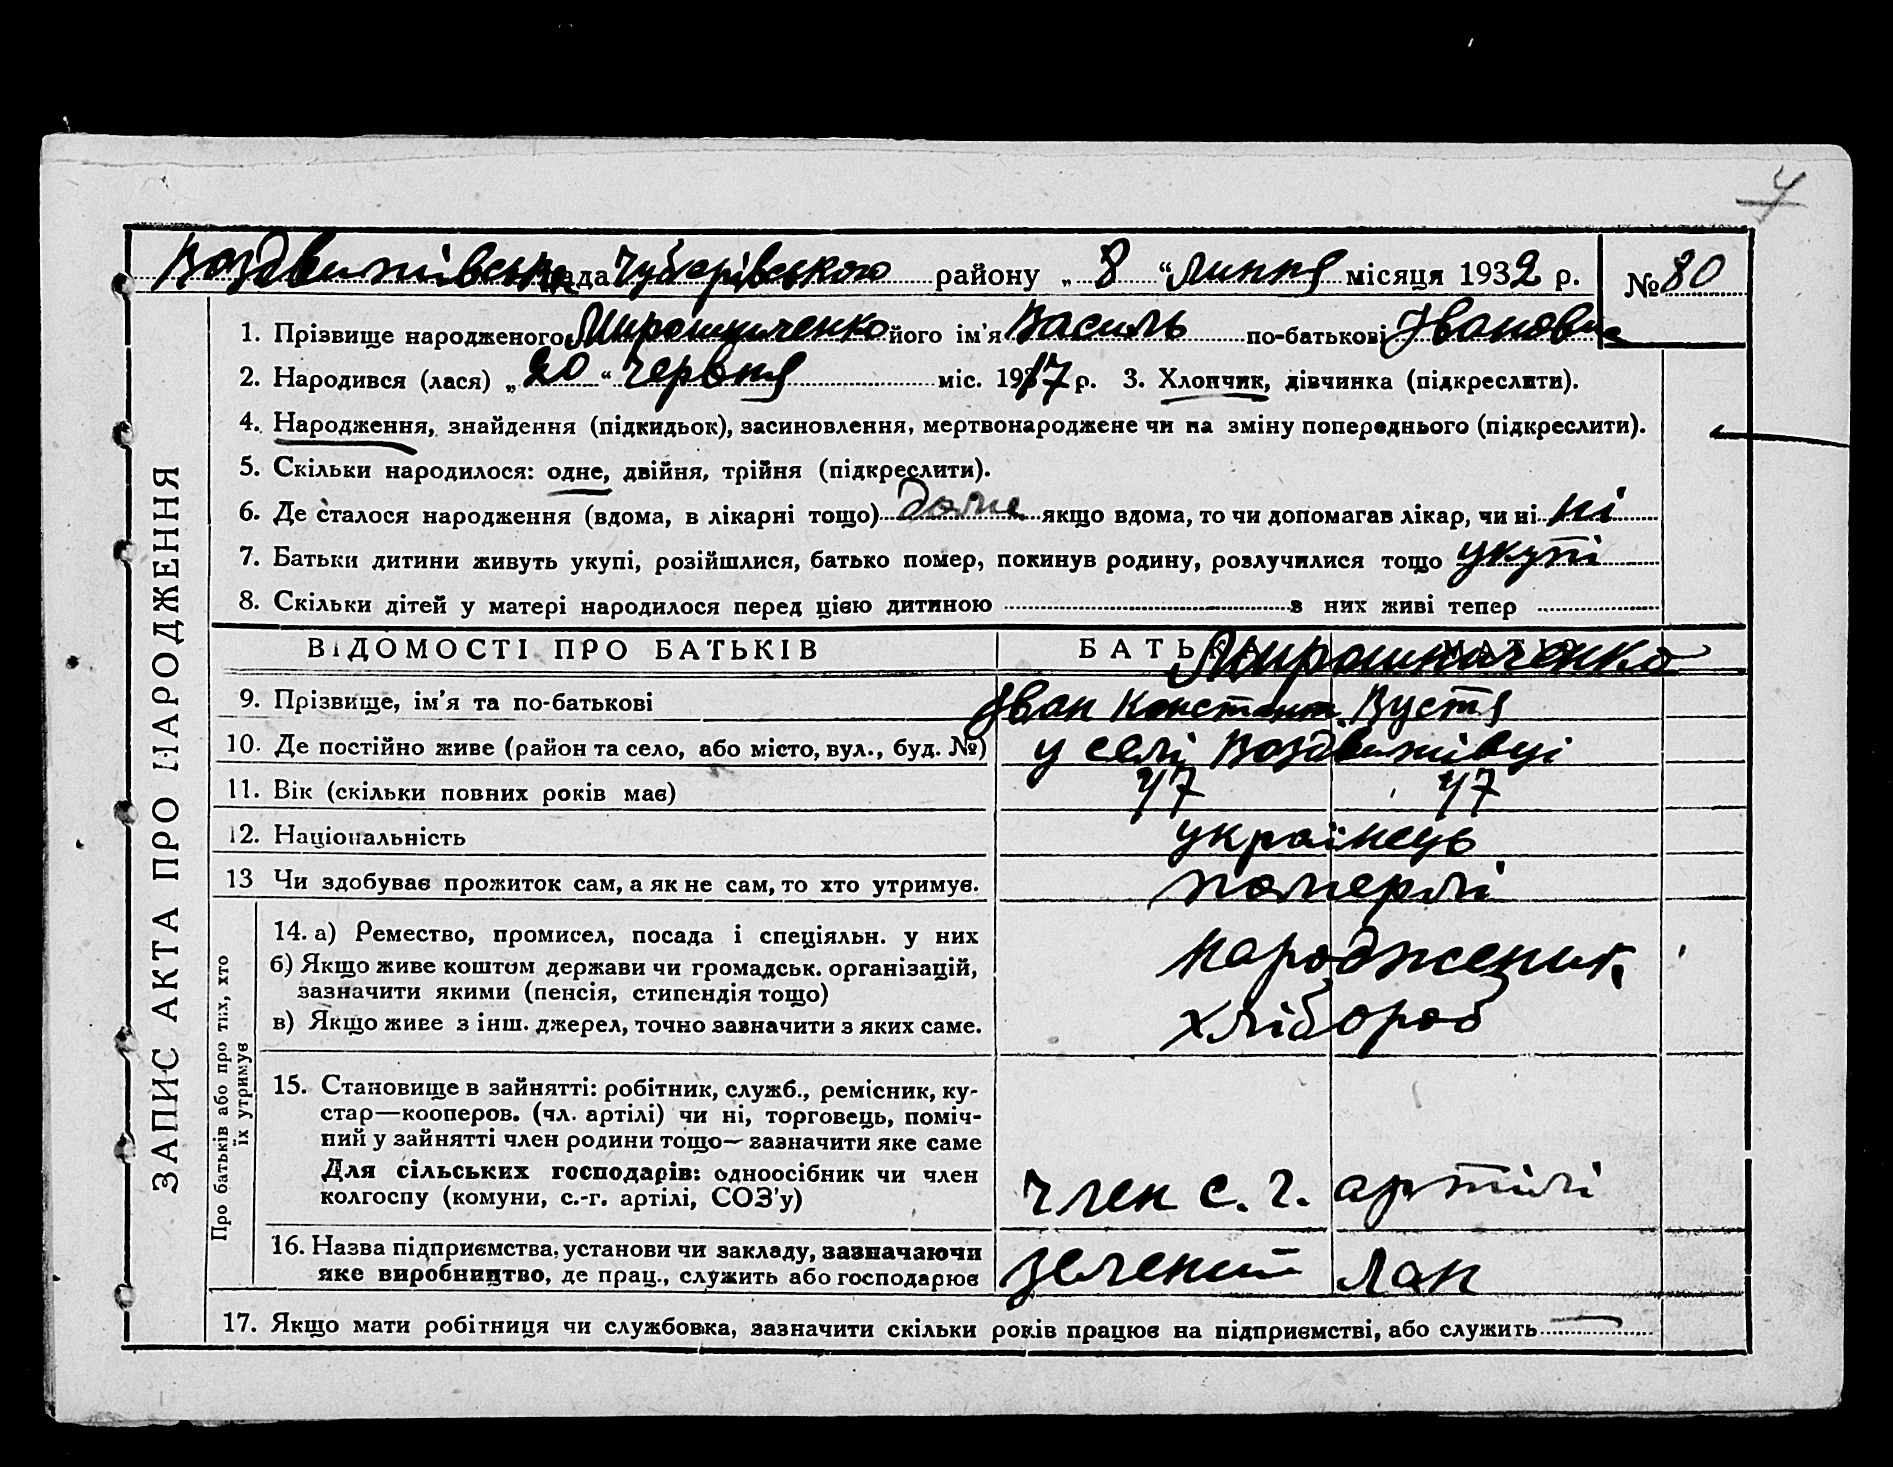 4
Воздвижівська рада Чубарівського району „ 8 “ Липня місяця 1932 р. № 80
1. Прізвище народженого Мирошниченко його ім'я Василь по-батькові Іванович
2. Народився (лася) „ 20 “ червня міс. 1917 р. 3. Хлопчик, дівчинка (підкреслити).
4. Народження, знайдення (підкидьок), засиновлення, мертвонароджене чи на зміну попереднього (підкреслити).
5. Скільки народилося: одне, двійня, трійня (підкреслити).
6. Де сталося народження (вдома, в лікарні тощо) дома якщо вдома, то чи допомагав лікар, чи ні ні
7. Батьки дитини живуть укупі, розійшлися, батько помер, покинув родину, розлучилися тощо укупі
8. Скільки дітей у матері народилося перед цією дитиною з них живі тепер
ВІДОМОСТІ ПРО БАТЬКІВ БАТЬКО МАТЬ Мирошниченко
9. Прізвище, ім'я та по-батькові Іван Констант. Вустя
10. Де постійно живе (район та село, або місто, вул., буд. №) у селі Воздвижівці
11. Вік (скільки повних років має) 47 47
12. Національність українець
13 Чи здобуває прожиток сам, а як не сам, то хто утримує. померлі
Про батьків або про тих, хто їх утримує
14. а) Ремество, промисел, посада і спеціяльн. у них народженик
б) Якщо живе коштом держави чи громадськ. організацій,
зазначити якими (пенсія, стипендія тощо) хлібороб
в) Якщо живе з інш. джерел, точно зазначити з яких саме.
15. Становище в зайнятті: робітник, служб., ремісник, ку-
стар—кооперов. (чл. артілі) чи ні, торговець, поміч-
ний у зайнятті член родини тощо—зазначити яке саме
Для сільських господарів: одноосібник чи член
колгоспу (комуни, с.-г. артілі, СОЗ'у) член с. г. артілі
16. Назва підприємства, установи чи закладу, зазначаючи
яке виробництво, де прац., служить або господарює зелений лан
17. Якщо мати робітниця чи службовка, зазначити скільки років працює на підприємстві, або служить —
ЗАПИС АКТА ПРО НАРОДЖЕННЯ